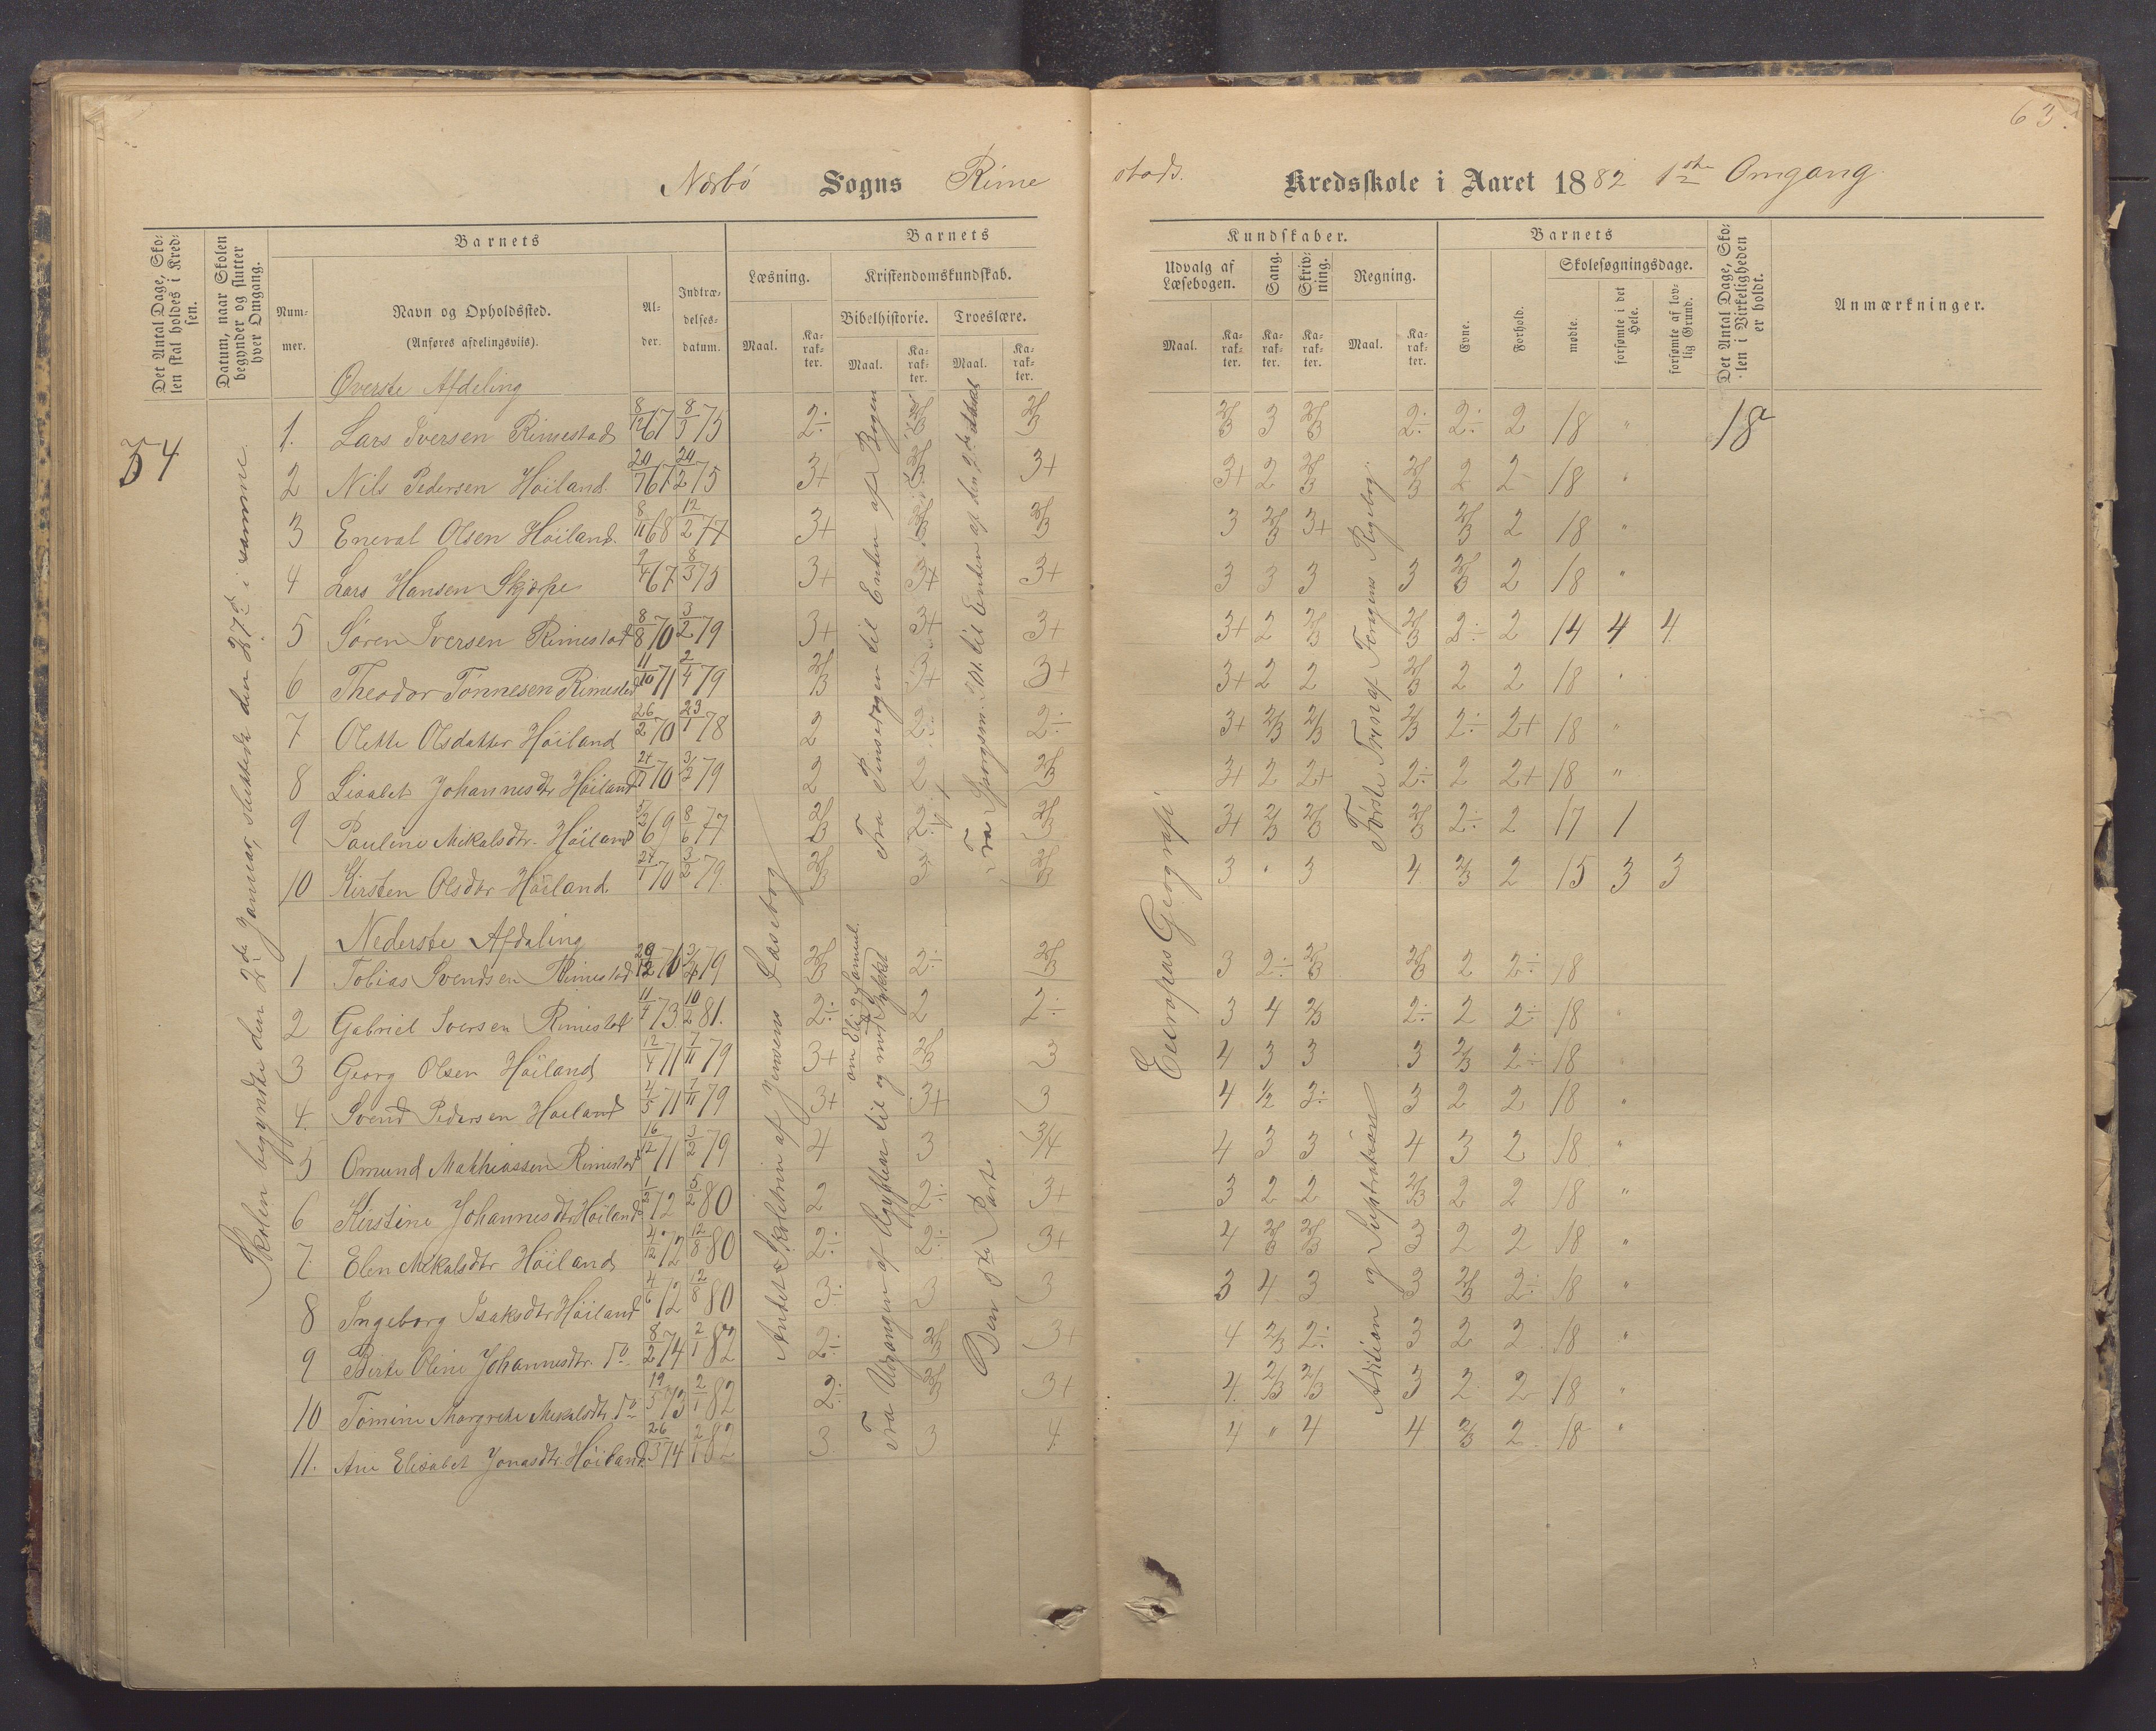 63.
Nærbö Sogns Rime
stads. Kredsskole i Aaret 1882 1ste Omgang.
Det Antal Dage, Skolen skal holdes i Kredsen.
Datum, naar Skolen begynder og slutter hver Omgang.
Barnets
Nummer.
Navn og Opholdssted.
(Anføres afdelingsviis).
Alder.
Indtrædelsesdatum.
Barnets
Læsning.
Maal.
Karakter.
Kristendomskundskab.
Bibelhistorie.
Maal.
Karakter.
Troeslære.
Maal.
Karakter.
Kundskaber.
Udvalg af Læsebogen.
Maal.
Karakter.
Sang.
Karakter.
Skrivning.
Karakter.
Regning.
Maal.
Karakter.
Barnets
Evne.
Forhold.
Skolesøgningsdage.
mødte.
forsømte i det Hele.
forsømte af lovlig Grund.
Det Antal Dage, Skolen i Virkeligheden er holdt.
Anmærkninger.
54
Skolen begyndte den 2de Januar, sluttede den 27de i samme.
Øverste Afdeling
1. Lars Iversen Rimestad 8/12 67 8/3 75 2÷ 2/3 2/3 2/3 3 2/3 2÷ 2÷ 2 18 " 18
2 Nils Pedersen Höiland. 20/7 67 20/2 75 3+ 2/3 3+ 3+ 2 2/3 2/3 2 2 18 "
3 Eneval Olsen Höiland. 8/11 68 12/2 77 3+ 2/3 2/3 3 2/3 3+ 2/3 2 18 "
4 Lars Hansen Skjærpe 9/4 67 8/3 75 3+ 3+ 3+ 3 3 3 3 2/3 2 18 "
5 Sören Iversen Rimestad 8/8 70 3/2 79 3+ 3+ 3+ 3+ 2 2/3 2/3 2÷ 2 14 4 4
6 Theodor Tönnesen Rimestad 11/10 71 2/4 79 2/3 3+ 3+ 3+ 2 2 2/3 2 2 18 "
7 Olette Olsdatter Höiland 26/2 70 23/1 78 2 2÷ 2÷ 3+ 2/3 2/3 2/3 2÷ 2+ 18 "
8 Lisabet Johannesdtr Höiland 24/11 70 3/2 79 2 2÷ 2/3 3+ 2 2+ 2÷ 2 2+ 18 "
9 Pauline Mikalsdtr. Höiland 69 8/6 77 2/3 2÷ 2/3 3+ 2/3 2/3 2/3 2÷ 2 17 1
10 Kirsten Olsdtr Höiland 24/1 70 3/2 79. 2/3 3 2/3 3 " 3 4 2/3 2 15 3 3
Fra Pinsedagen til Enden af Bogen
Fra Spørgsm. 301 til Enden af den 2den Part
Første Trin af Forgens Regebog.
Nederste Afdeling
1 Tobias Svendsen Rimestad 20/12 70 3/2 79 2/3 2÷ 2/3 3 2÷ 2/3 2/3 2 2÷ 18
2 Gabriel Iversen Rimestad 11/4 73 10/2 81. 2÷ 2 2÷ 3 4 2/3 2÷ 2 2÷ 18 "
3 Georg Olsen Höiland 12/4 71 7/11 79 3+ 2/3 3 4 3 3 3 2/3 2÷ 18 "
4. Svend Pedersen Höiland 4/5 71 7/11 79 3+ 3+ 3 4 1/2 2÷ 3 2 2 18 "
5 Omund Mathiassen Rimestad 16/12 71 3/2 79 4 3 3/4 4 3 3 4 3 2 18 "
6 Kirstine Johannesdtr Höiland 1/3 72 5/2 80 2 2÷ 3+ 3 2 2 2/3 2 2 18 "
7. Elen Mikalsdtr Höiland 4/12 72 12/8 80 2÷ 2÷ 3+ 4 2/3 2/3 3 2 2 18 "
8 Ingeborg Isaksdtr Höiland 4/6 72 12/8 80 3÷ 3 3 3 4 3 3 2/3 2÷ 18 "
9 Berte Oline Johannesdtr. Do 8/2 74 2/1 82 2÷ 2/3 3+ 4 2/3 2÷ 3 2 2 18 "
10 Tomine Margrete Mekalsdtr Do 19/5 73 2/1 82 2÷ 2/3 3+ 4 2/3 2/3 3 2 2 18 "
11. Ane Elisabet Jonasdtr. Höiland. 26/3 74 2/1 82 3 3 4 4 " 4 4 2/3 2 18 "
Andet Skoletrin af Jensens Læsebog
Fra Udgangen af Ægypten til og med Stykket om Eli og Samuel.
Den 5te Part
Europas Geografi
Adition og Suptraktion